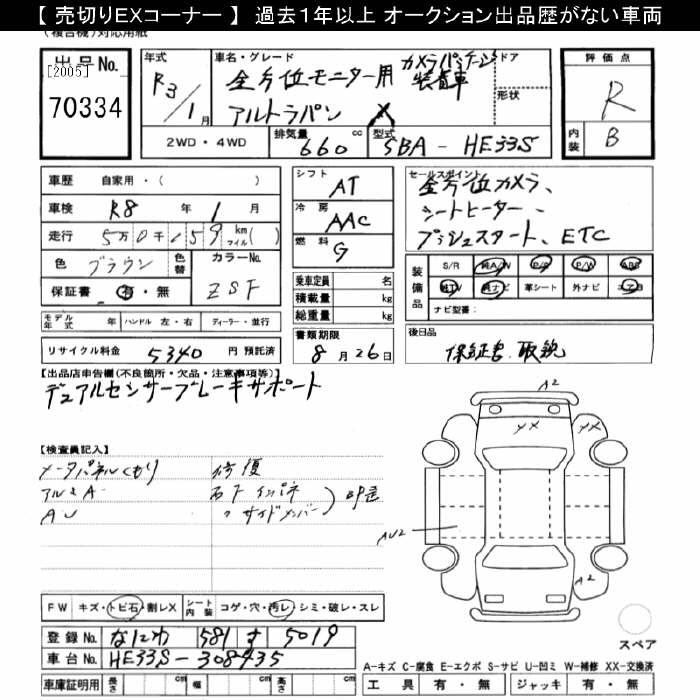 【 売切りEXコーナー 】 過去１年以上 オークション出品歴がない車両
(複合機)対応用紙
出品No.
[2005]
70334
年式
R3/1月
車名・グレード
全方位モニター用 カメラパッケージ装着車
アルトラパン X
ドア
形状
2WD・4WD
排気量 660 cc
型式 5BA - HE33S
評価点
R
内装 B
車歴 自家用・( )
車検 R8 年 1 月
走行 5万0千159 km マイル( )
色 ブラウン 色替
カラーNo. ZSF
保証書 有・無
モデル年式 年 ハンドル 左・右 ディーラー・並行
リサイクル料金 5340 円 預託済
シフト AT
冷房 AAC
燃料 G
乗車定員 名
積載量 kg
総重量 kg
書類期限
8月26日
セールスポイント
全方位カメラ、
シートヒーター、
プッシュスタート、ETC
装備品
S/R 純A/W P/S P/W ABS
純TV 純ナビ 革シート 外ナビ エアB
ナビ型番:
後日品
保証書、取説
【出品店申告欄(不良箇所・欠品・注意事項等)】
デュアルセンサーブレーキサポート
【検査員記入】
メータパネルくもり
アルミA
AU
修復
右F インパネ
〃 サイドメンバー
A2
XX
XX
AU2
A2
FW キズ・トビ石・割レX
シート内装 コゲ・穴・汚レ・シミ・破レ・スレ
登録No. なにわ 581 す 5019
車台No. HE33S-308435
車庫証明用 長さ cm 幅 cm 高さ cm
スペア
A-キズ C-腐食 E-エクボ S-サビ U-凹ミ W-補修 XX-交換済
工具 有・無 ジャッキ 有・無